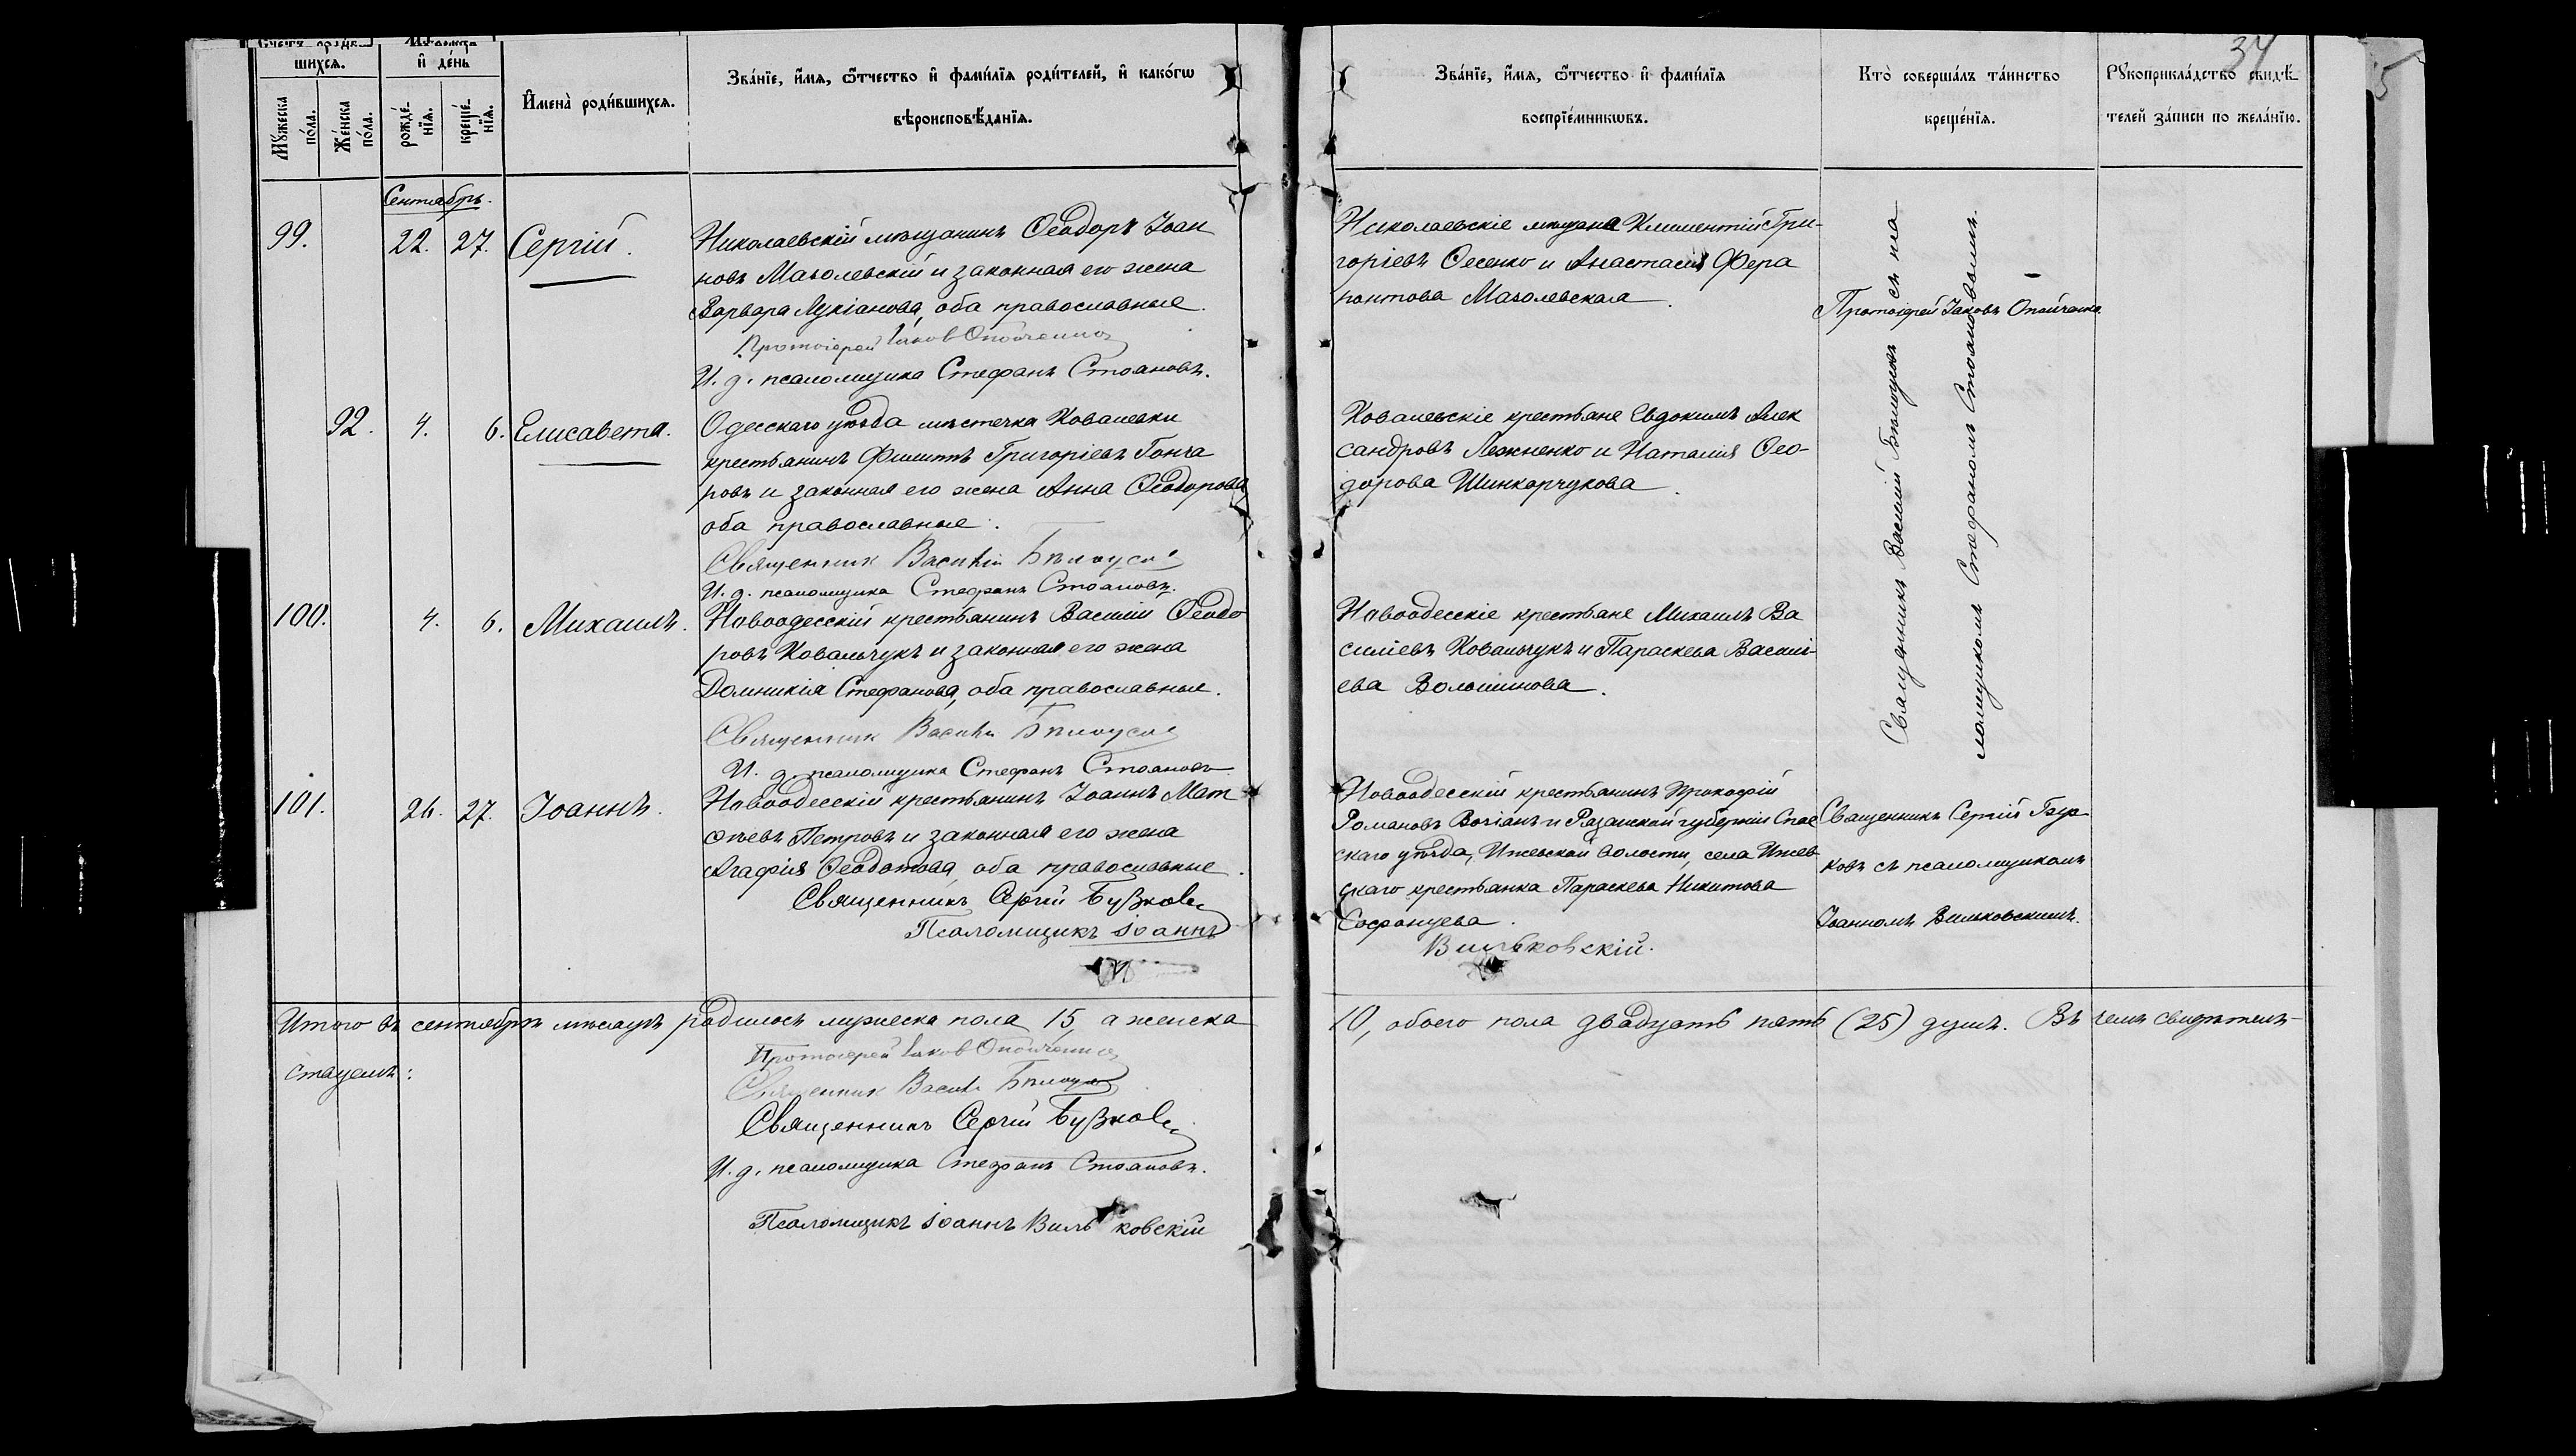 34
Счетъ роди-
шихсѧ.
Мѣсѧцъ
и҆ де́нь
Мꙋ́жеска по́ла.
Же́нска по́ла.
рожде́-нїѧ.
креще́-нїѧ.
И҆мена̀ роди́вшихсѧ.
Зва́нїе, и҆́мѧ, ѻ҆́тчество и҆ фами́лїѧ роди́телей, и҆ како́гѡ
вѣроисповѣ́данїѧ.
Зва́нїе, и҆́мѧ, ѻ҆́тчество и҆ фами́лїѧ
воспрїе́мникѡвъ.
Кто̀ соверша́лъ та́инство
креще́нїѧ.
Рꙋкоприкла́дство свидѣ́-
телей за́писи по жела́нїю.
Сентябрь.
99.
22. 27. Сергій.
Николаевскій мѣщанинъ Ѳеодоръ Іоан
новъ Маголевскій и законная его жена
Варвара Лукіанова, оба православные.
Протоіерей Іаковъ Опойченко
И. д. псаломщика Стефанъ Стояновъ.
Николаевскіе мѣщане Климентій Гри-
горіевъ Сесенко и Анастасія Фера
понтова Маголевская.
Протоіерей Іаковъ Опойченко
92. 4. 6. Елисавета.
Одесскаго уѣзда мѣстечка Ковалевки
крестьянинъ Филиппъ Григоріевъ Гонча
ровъ и законная его жена Анна Ѳеодорова
оба православные.
Священник Василій Бѣлоусов
И. д. псаломщика Стефанъ Стояновъ.
Ковалевскіе крестьяне Евдокимъ Алек
сандровъ Лежненко и Наталія Ѳео-
дорова Шинкарчукова.
Священникъ Василій Бѣлоусовъ съ пса
ломщикомъ Стефаномъ Стояновымъ.
100. 4. 6. Михаилъ.
Новоодесскій крестьянинъ Василій Ѳеодо
ровъ Ковальчукъ и законная его жена
Домникія Стефанова, оба православные.
Священник Василій Бѣлоусов
И. д. псаломщика Стефанъ Стояновъ
Новоодесскіе крестьяне Михаилъ Ва
силіевъ Ковальчукъ и Параскева Василі-
ева Волошинова.
101. 26. 27. Іоаннъ.
Новоодесскій крестьянинъ Іоаннъ Мат
ѳѣевъ Петровъ и законная его жена
Агафія Ѳеодотова, оба православные.
Священникъ Сергій Бузковъ
Псаломщикъ Іоаннъ
Новоодесскій крестьянинъ Прокофій
Романовъ Вочіанъ и Рязанской губерніи Спас
скаго уѣзда, Ижевской волости, села Ижев
скаго крестьянка Параскева Никитова
Софонцева.
Вильковскій.
Священникъ Сергій Буз
ковъ съ псаломщикомъ
Іоанномъ Вильковскимъ.
Итого въ сентябрѣ мѣсяцѣ родилось мужеска пола 15, а женска 10, обоего пола двадцать пять (25) душъ. Въ чемъ свидѣтель-
ствуемъ:
Протоіерей Іаковъ Опойченко
Священник Василій Бѣлоусов
Священникъ Сергій Бузковъ
И. д. псаломщика Стефанъ Стояновъ.
Псаломщикъ Іоаннъ Вильковскій